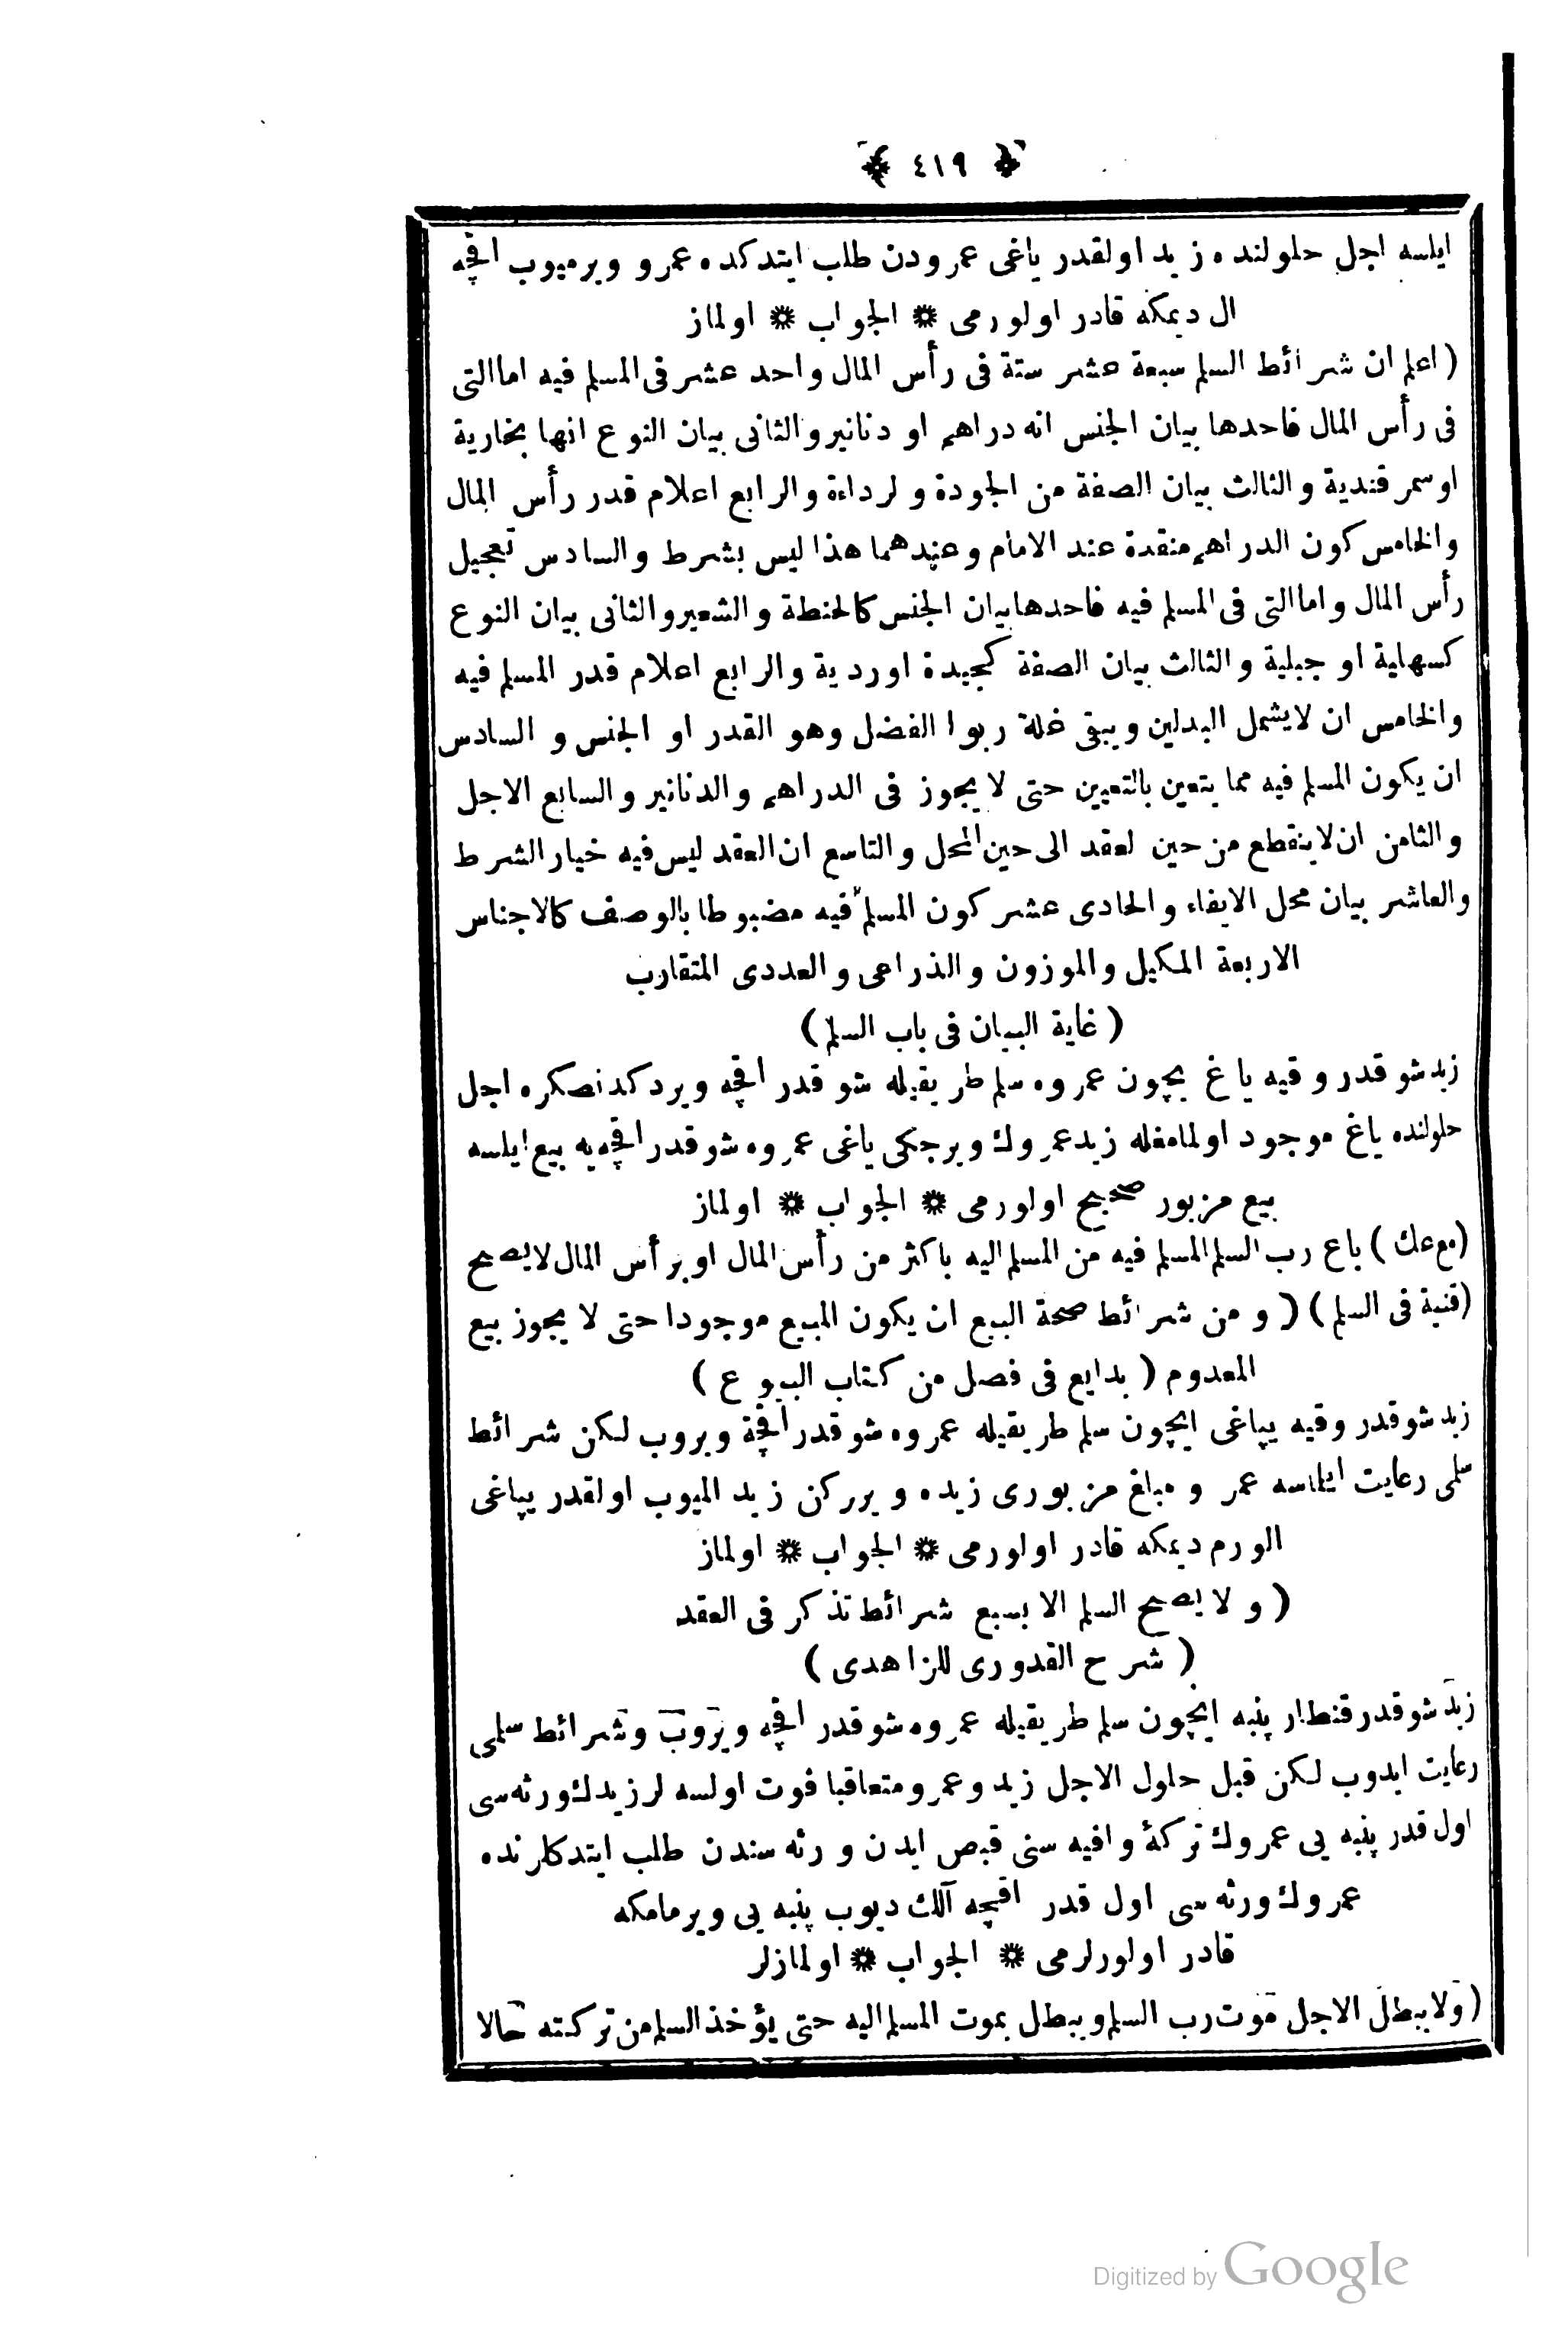 ﴿ ٤١٩ ﴾
ايلسه اجل حلولنده زيد اولقدر ياغى عمرودن طلب ايتدكده عمرو ويرميوب اقچه
ال ديمكه قادر اولورمى ❋ الجواب ❋ اولماز
( اعلم ان شرائط السلم سبعة عشر ستة فى رأس المال واحد عشر فى المسلم فيه اما التى
فى رأس المال فاحدها بيان الجنس انه دراهم او دنانير والثانى بيان النوع انها بخارية
او سمرقندية والثالث بيان الصفة من الجودة و لرداءة والرابع اعلام قدر رأس المال
والخامس كون الدراهم منقدة عند الامام وعندهما هذا ليس بشرط والسادس تعجيل
رأس المال واما التى فى المسلم فيه فاحدها بيان الجنس كالحنطة والشعير والثانى بيان النوع
كسهلية او جبلية والثالث بيان الصفة كجيدة او ردية والرابع اعلام قدر المسلم فيه
والخامس ان لا يشمل البدلين ويبقى علة ربوا الفضل وهو القدر او الجنس و السادس
ان يكون المسلم فيه مما يتعين بالتعيين حتى لا يجوز فى الدراهم والدنانير والسابع الاجل
والثامن ان لا ينقطع من حين لعقد الى حين المحل والتاسع ان العقد ليس فيه خيار الشرط
والعاشر بيان محل الايفاء والحادى عشر كون المسلم فيه مضبوطا بالوصف كالاجناس
الاربعة المكيل والموزون والذراعى والعددى المتقارب
( غاية البيان فى باب السلم )
زيد شو قدر وقيه ياغ يچون عمروه سلم طريقيله شو قدر اقچه ويردكدنصكره اجل
حلولنده ياغ موجود اولمامغله زيد عمروك ويرجكى ياغى عمروه شو قدر اقچه يه بيع ايلسه
بيع مزبور صحيح اولورمى ❋ الجواب ❋ اولماز
( مع عك ) باع رب السلم المسلم فيه من المسلم اليه باكثر من رأس المال او برأس المال لا يصح
( قنية فى السلم ) ( و من شرائط صحة البيع ان يكون المبيع موجودا حتى لا يجوز بيع
المعدوم ( بدايع فى فصل من كتاب البيوع )
زيد شو قدر وقيه يپاغى ايچون سلم طريقيله عمروه شو قدر اقچة ويروب لكن شرائط
سلمى رعايت ايلمسه عمرو مبلغ مزبورى زيده ويرركن زيد الميوب اولقدر يپاغى
الورم ديمكه قادر اولورمى ❋ الجواب ❋ اولماز
( و لا يصح السلم الا بسبع شرائط تذكر فى العقد
( شرح القدورى للزاهدى )
زيد شو قدر قنطار پنبه ايچون سلم طريقيله عمروه شو قدر اقچه ويروب وشرائط سلمى
رعايت ايدوب لكن قبل حلول الاجل زيد وعمرو متعاقبا فوت اولسه لر زيدك ورثه سى
اول قدر پنبه يى عمروك تركۀ وافيه سنى قبض ايدن ورثه سندن طلب ايتدكلرنده
عمروك ورثه سى اول قدر اقچه آلك ديوب پنبه يى ويرمامكه
قادر اولورلرمى ❋ الجواب ❋ اولمازلر
( ولا يبطل الاجل موت رب السلم ويبطل بموت المسلم اليه حتى يؤخذ السلم من تركته حالا
Digitized by Google